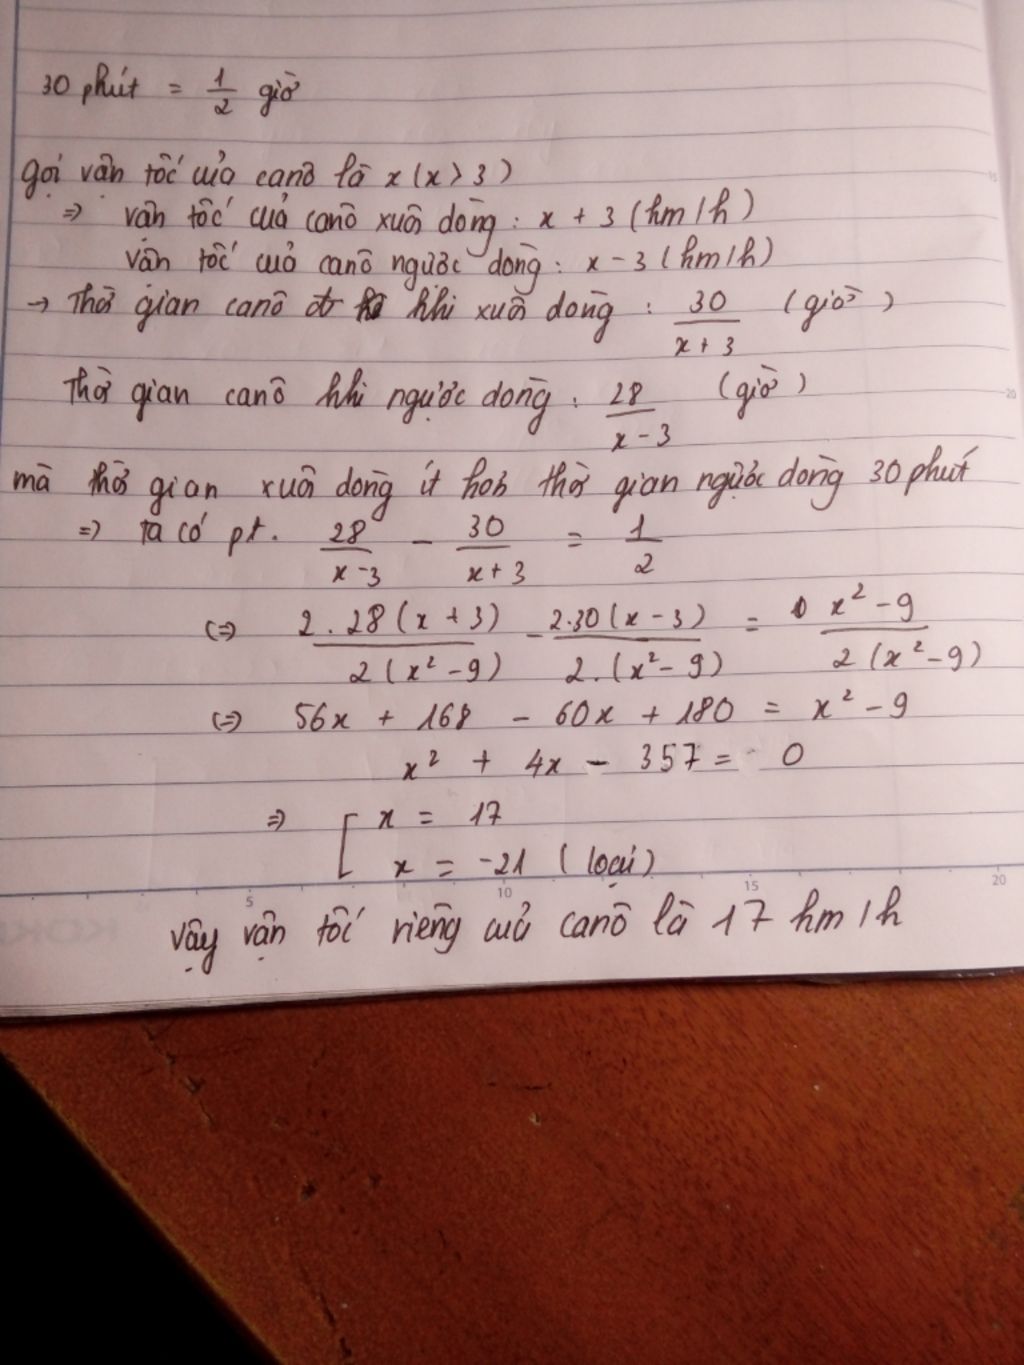 30 phút = 1/2 giờ
gọi vận tốc của canô là x (x > 3)
=> vận tốc của canô xuôi dòng: x + 3 (km/h)
vận tốc của canô ngược dòng: x - 3 (km/h)
→ Thời gian canô khi xuôi dòng: 30/(x + 3) (giờ)
Thời gian canô khi ngược dòng: 28/(x - 3) (giờ)
mà thời gian xuôi dòng ít hơn thời gian ngược dòng 30 phút
=> ta có pt. 28/(x - 3) - 30/(x + 3) = 1/2
(=) 2.28(x + 3)/2(x² - 9) - 2.30(x - 3)/2.(x² - 9) = x² - 9/2(x² - 9)
(=) 56x + 168 - 60x + 180 = x² - 9
x² + 4x - 357 = 0
=> [ x = 17
x = -21 (loại)
5 10 15 20
vậy vận tốc riêng của canô là 17 km/h